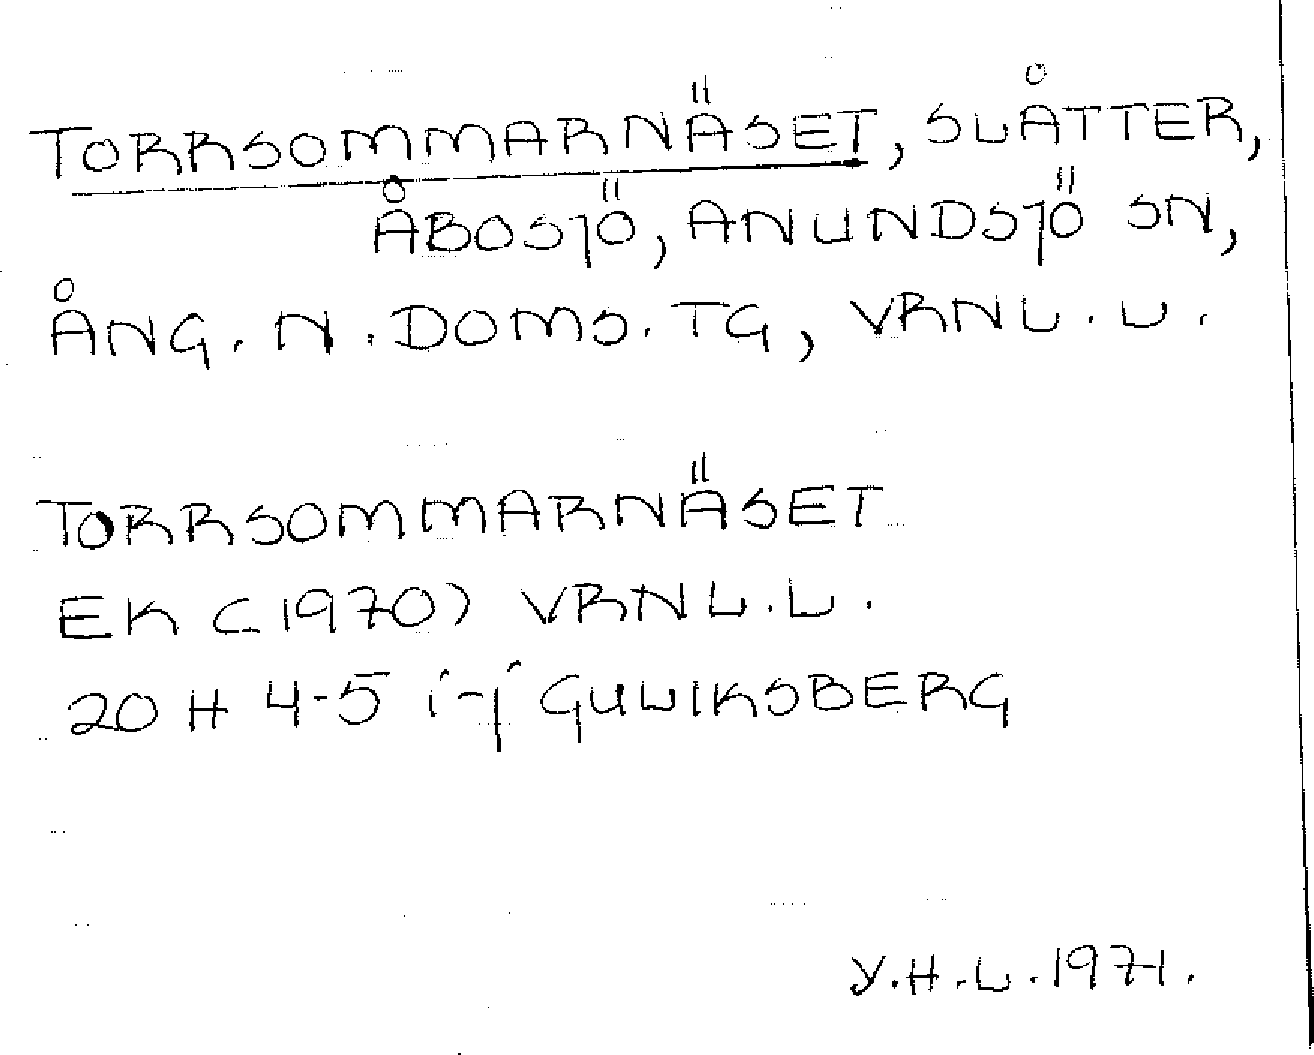 TORRSOMMARNÄSET, SLÅTTER,
ÅBOSJÖ, ANUNDSJÖ SN,
ÅNG. N. DOMS. TG, VRNL. L.
TORRSOMMARNÄSET
EK (1970) VRNL. L.
20 H 4-5 i-j GULLIKSBERG
Y.H.L. 1971.